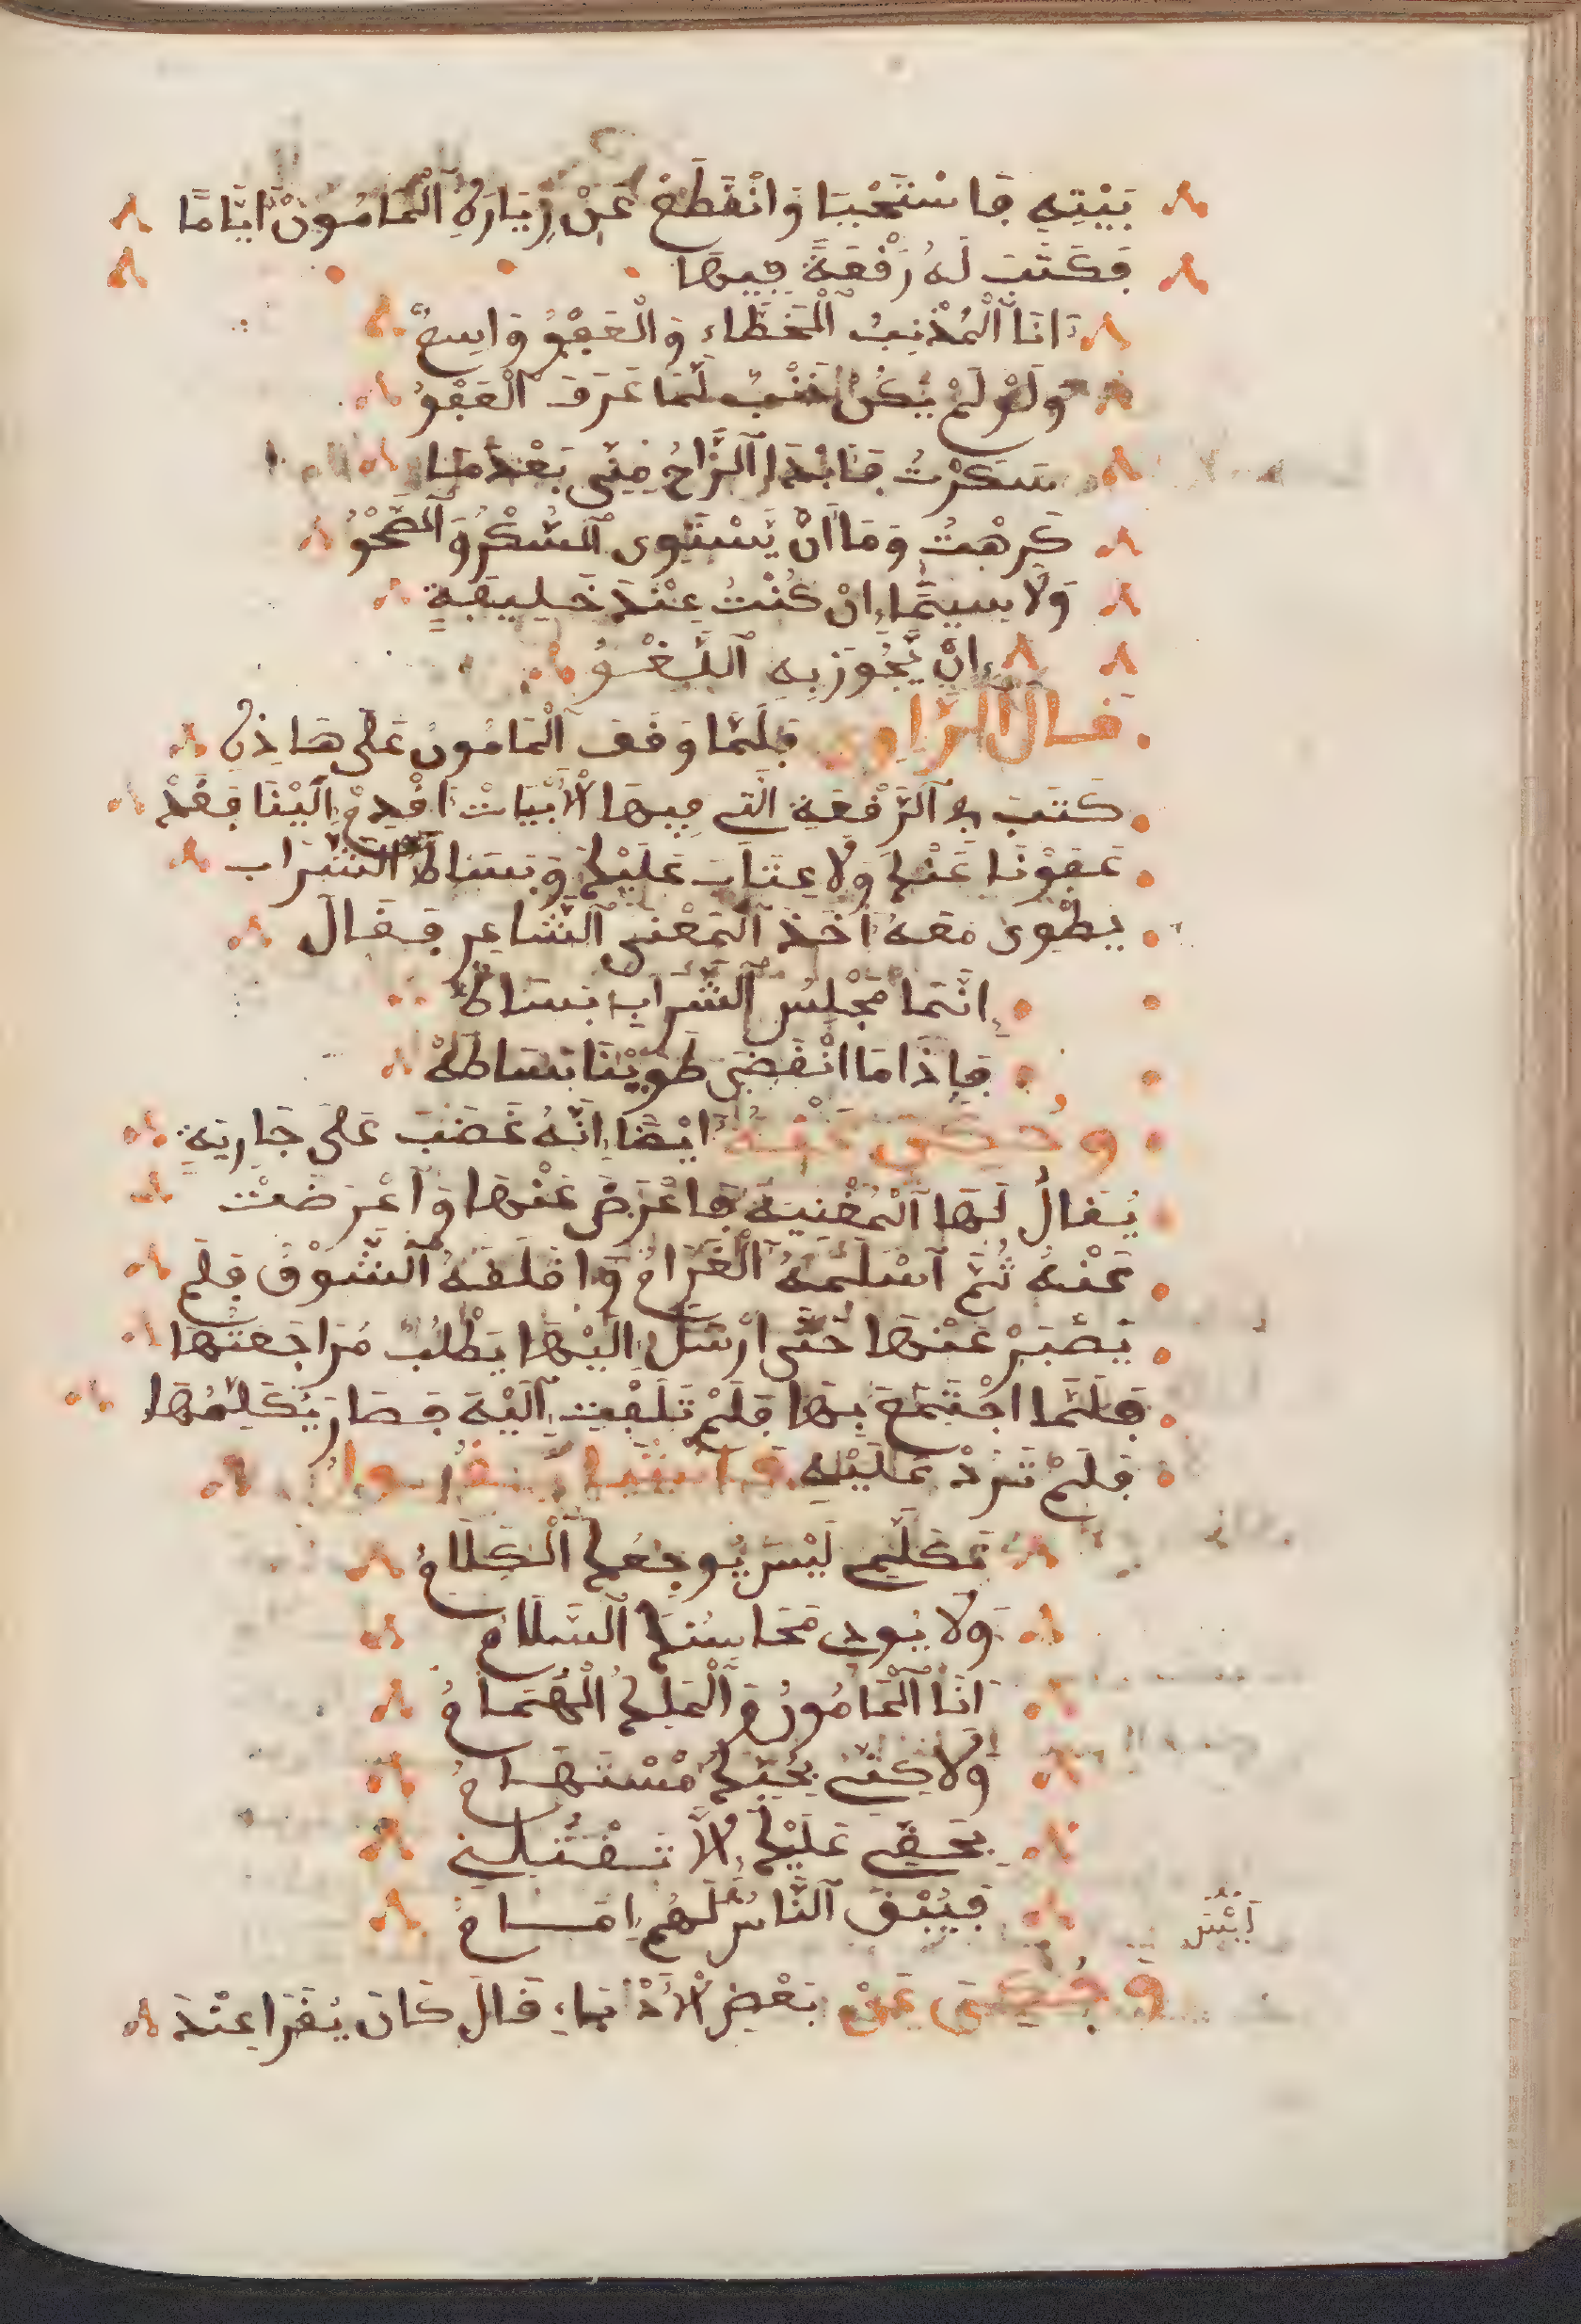 بَيْتِهِ فَاسْتَحْيَا وَانْقَطَعَ عَنْ زِيَارَةِ الْمَامُونْ اَيَّامًا
فَكَتَبَ لَهُ رُقْعَةً فِيهَا
اَنَا الْمُذْنِبُ الْخَطَّاء وَالْعَفْوُ وَاسِعٌ
وَلَوْ لَمْ يَكُنْ ذَنْبٌ لَمَا عَرَفَ الْعَفْوُ
سَكَرْتُ فَابْدَا الرَّاحُ مِنِّي بَعْدَمَا
كَرِهْتُ وَمَا اَنْ يَسْتَوِى السُّكْرُ وَالصَّحْوُ
وَلَا سِيَّمَا اِنْ كُنْتُ عِنْدَ خَلِيفَةٍ
اِنْ يَجُوزَ بِهِ اللَّغْوُ
قال الرَّاوِى فَلَمَّا وَقَفَ الْمَامُونُ عَلَى هَاذِهِ
كَتَبَ فِي الرُّقْعَةِ الَّتِي فِيهَا الْأَبْيَاتْ اقْدِمْ اِلَيْنَا فَقَدْ
عَفَوْنَا عَنْكَ وَلَا عِتَابَ عَلَيْكَ وَبِسَاطُ الشَّرَاب
يطْوى مَعَهُ اَخَذَ الْمَعْنى الشَّاعِر فَقَالَ
اِنَّمَا مَجْلِسُ الشَّرَابِ بِسَاطٌ
فَإِذَا مَا انْقَضَى طَوَيْنَا بِسَاطَهْ
وحُكِىَ عَنْهُ اَيْضًا اِنَّهُ غَضَبَ عَلَى جَارِيَةٍ
يُقَالُ لَهَا الْمُغْنِيَة فَاعْرَضَ عَنْهَا وَاَعْرَضَتْ
عَنْهُ ثُمَّ اَسْلَمَهُ الْغَرَامُ وَاقلَقَهُ الشَّوْقُ فَلَم
يَصْبَرْ عَنْهَا حَتَّى ارْسَلَ اِلَيْهَا يَطْلُبُ مُرَاجَعَتَهَا
فَلَمَّا اجْتَمَعَ بِهَا فَلَمْ تَلَفِت اِلَيْهِ فَصَارَ يُكَلِّمُهَا
فَلَمْ تَرُدْ عَلَيْهِ فَانْشَا يَقُول
تَكَلَّم لَيْسَ يُوجِعُك الْكَلَامُ
وَلَا يُودى مَحَاسِنَكَ السَّلَامُ
اَنَا الْمَامُونُ وَالْمَلِكُ الْهُمَامُ
وَلَاكِنِّي بِحُبِّكَ مُسْتَهَامُ
بِحَقِّي عَلَيْكِ اِلَّا تَقْتُلِينِي
فَيَبْقَى النَّاسُ لَهُم اِمَامُ
لَيْسَ
وَحُكِىَ عَنْ بَعْضِ الْأُدَبَاءِ قَالَ كَانَ يُقْرَا عِنْدَ